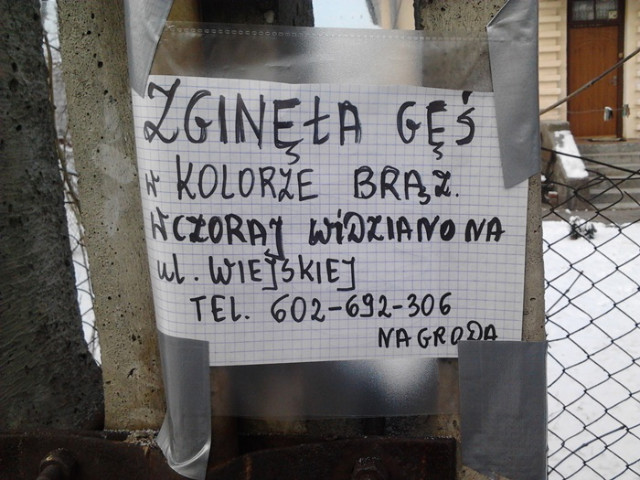 ZGINĘŁA GĘŚ
W KOLORZE BRĄZ.
WCZORAJ WIDZIANO NA
ul. WIEJSKIEJ
TEL. 602-692-306
NAGRODA